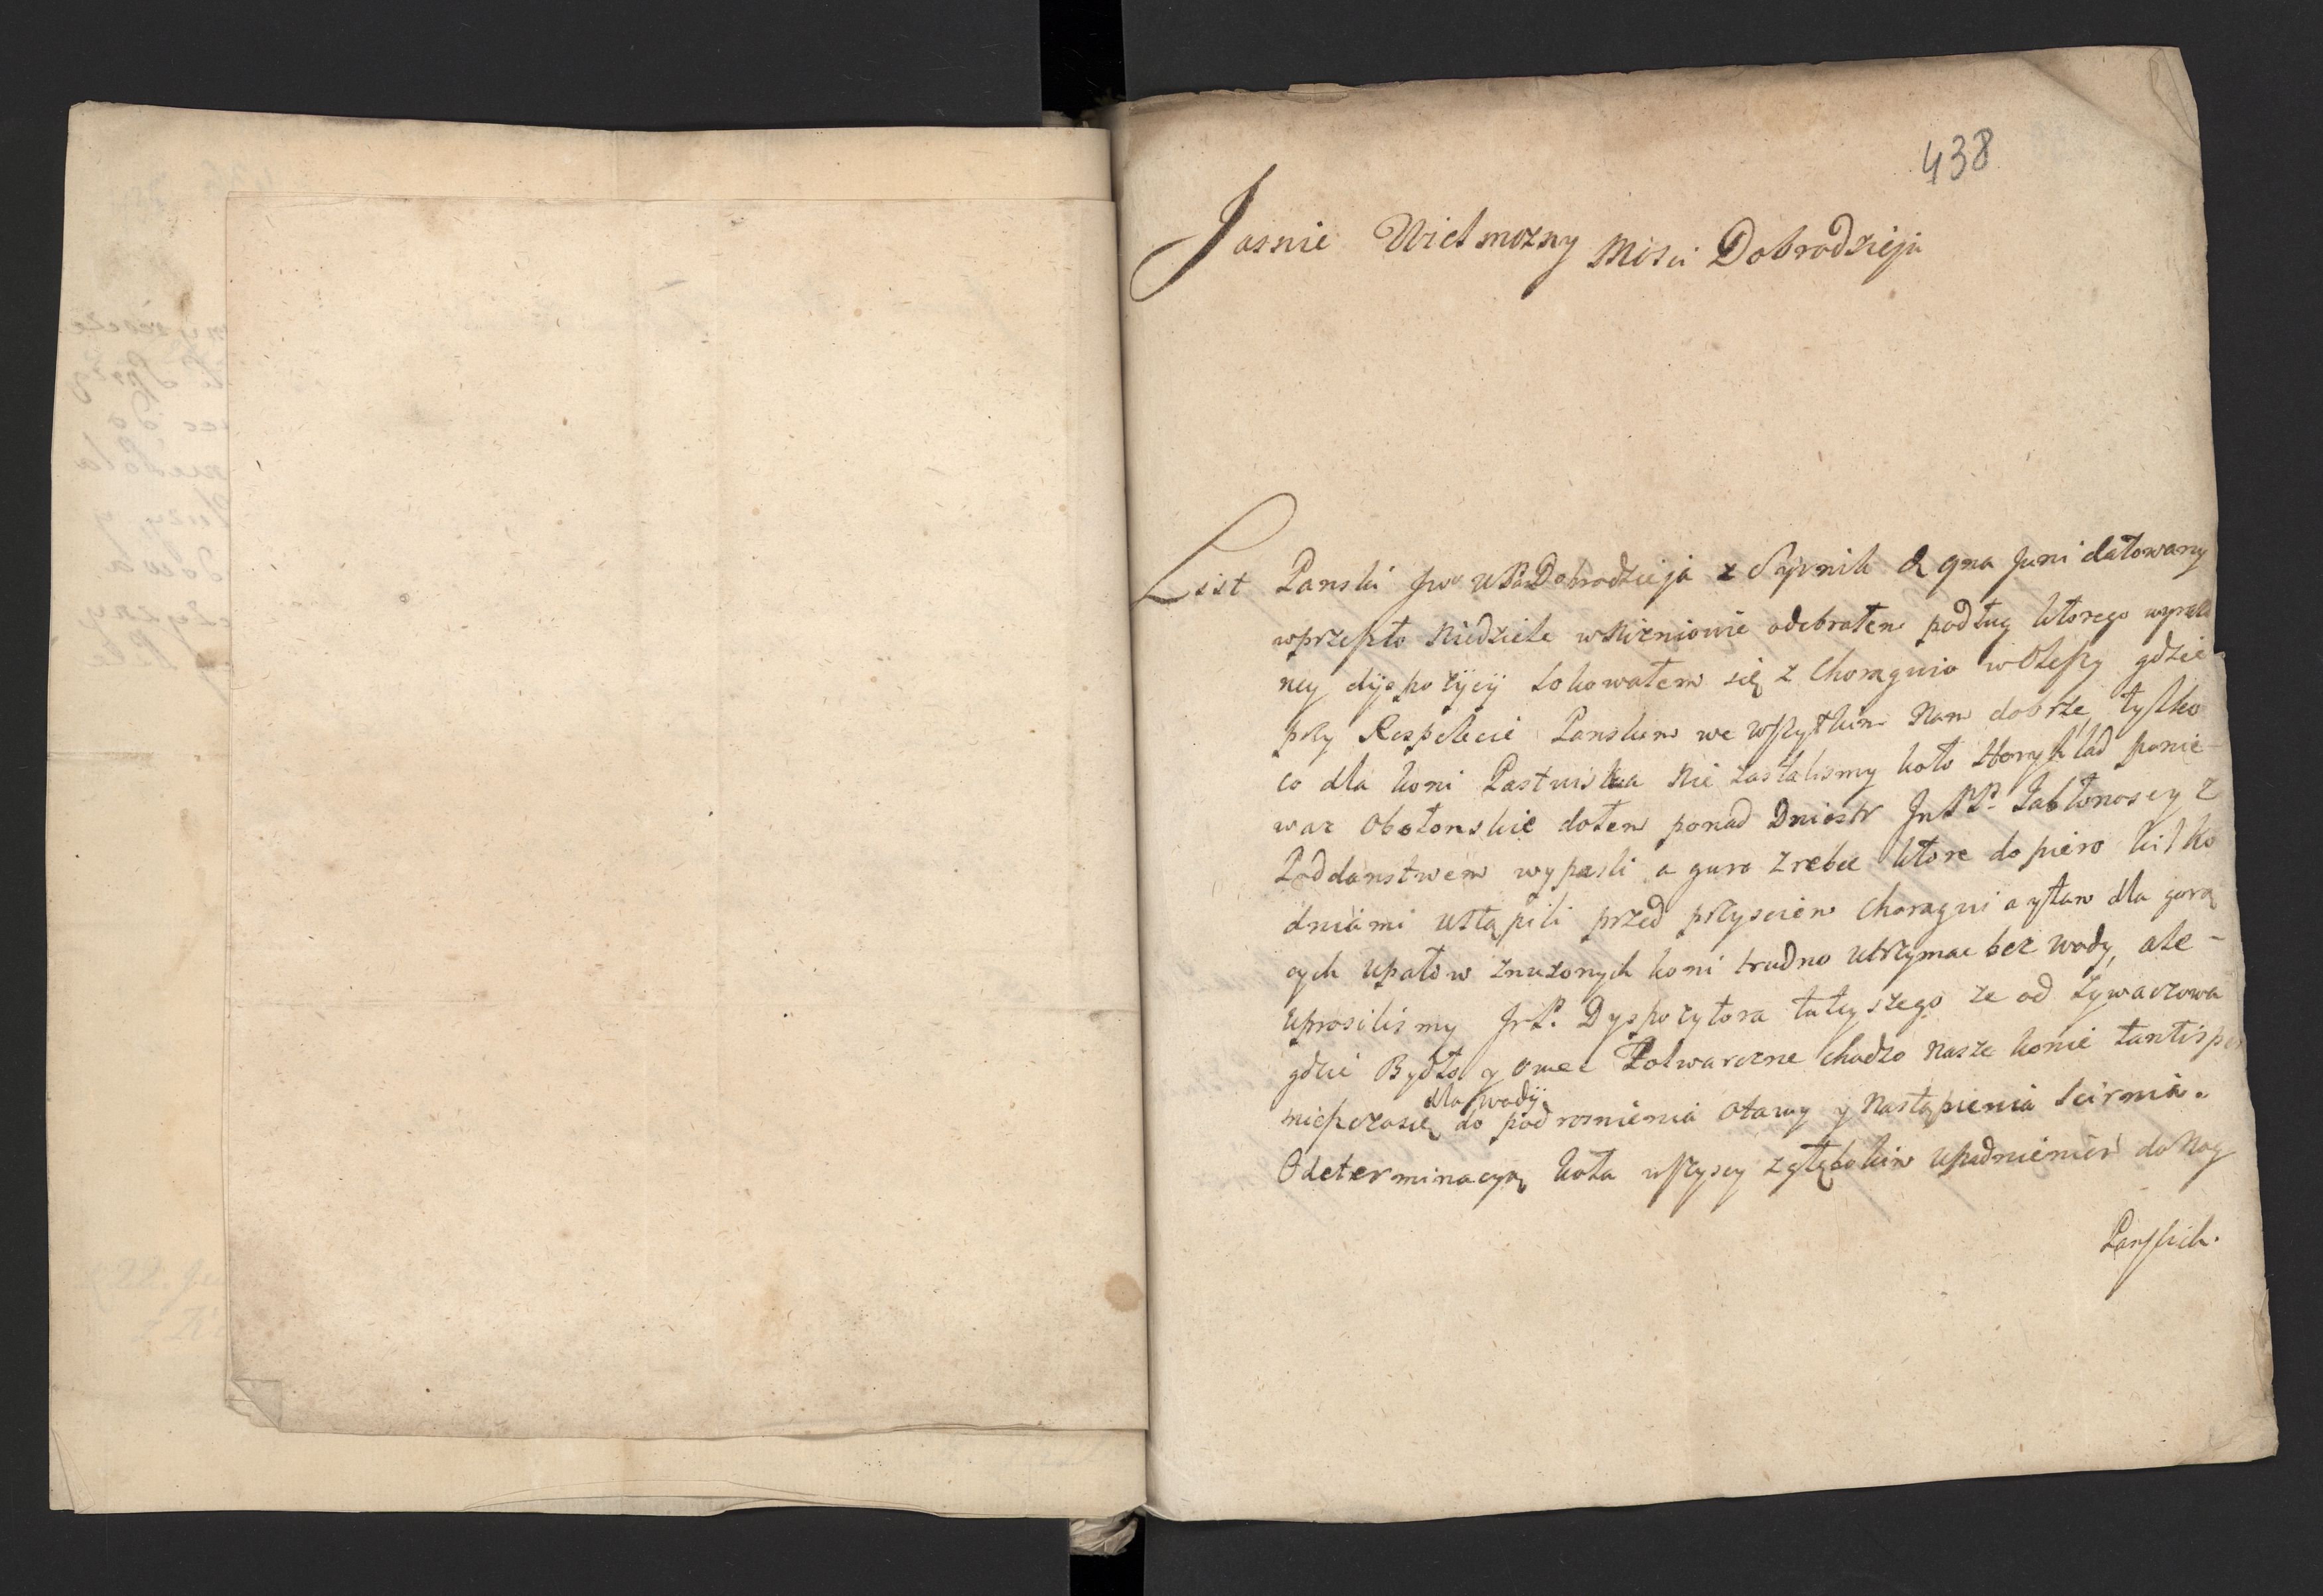 438
Jasnie Wielmozny Mosci Dobrodzieju
List Panski Jw WPaDobrodzieja z d 9na Juni datowany
wprzeszło Niedziele wNizniowie odebrałem podług ktorego wyraz
ney dyspozycyi lokowałem się z Choragwio w gdzie
przy Respekcie Panskim we wszytkim Nam dobrze, tylko
co dla koni Pastwiska Nie zastalismy koło ponie-
waz dołem ponad Dniestr JnPP. Jabłonoscy z
Poddanstwem wypasli a guro zrebce ktore dopiero kilko
dniami ustąpili przed przysciem Choragwi a ystam dla gorą
cych upałow znuzonych koni trudno utrzymac bez wody, ale-
uprosilismy JrP. Dyspozytora tuteyszego ze od Zywaczowa
gdzie Bydło y owce Folwarczne chodzo nasze konie tantisper
dla wody
mieszczasię do podrosnienia otawy y Nastąpienia scirnia.
Odeterminacyą koła wszyscy zgłębokim upadnieniem do Nog
Panskich.